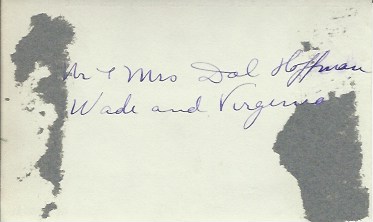 Mr & Mrs Dal Hoffman
Wade and Virginia